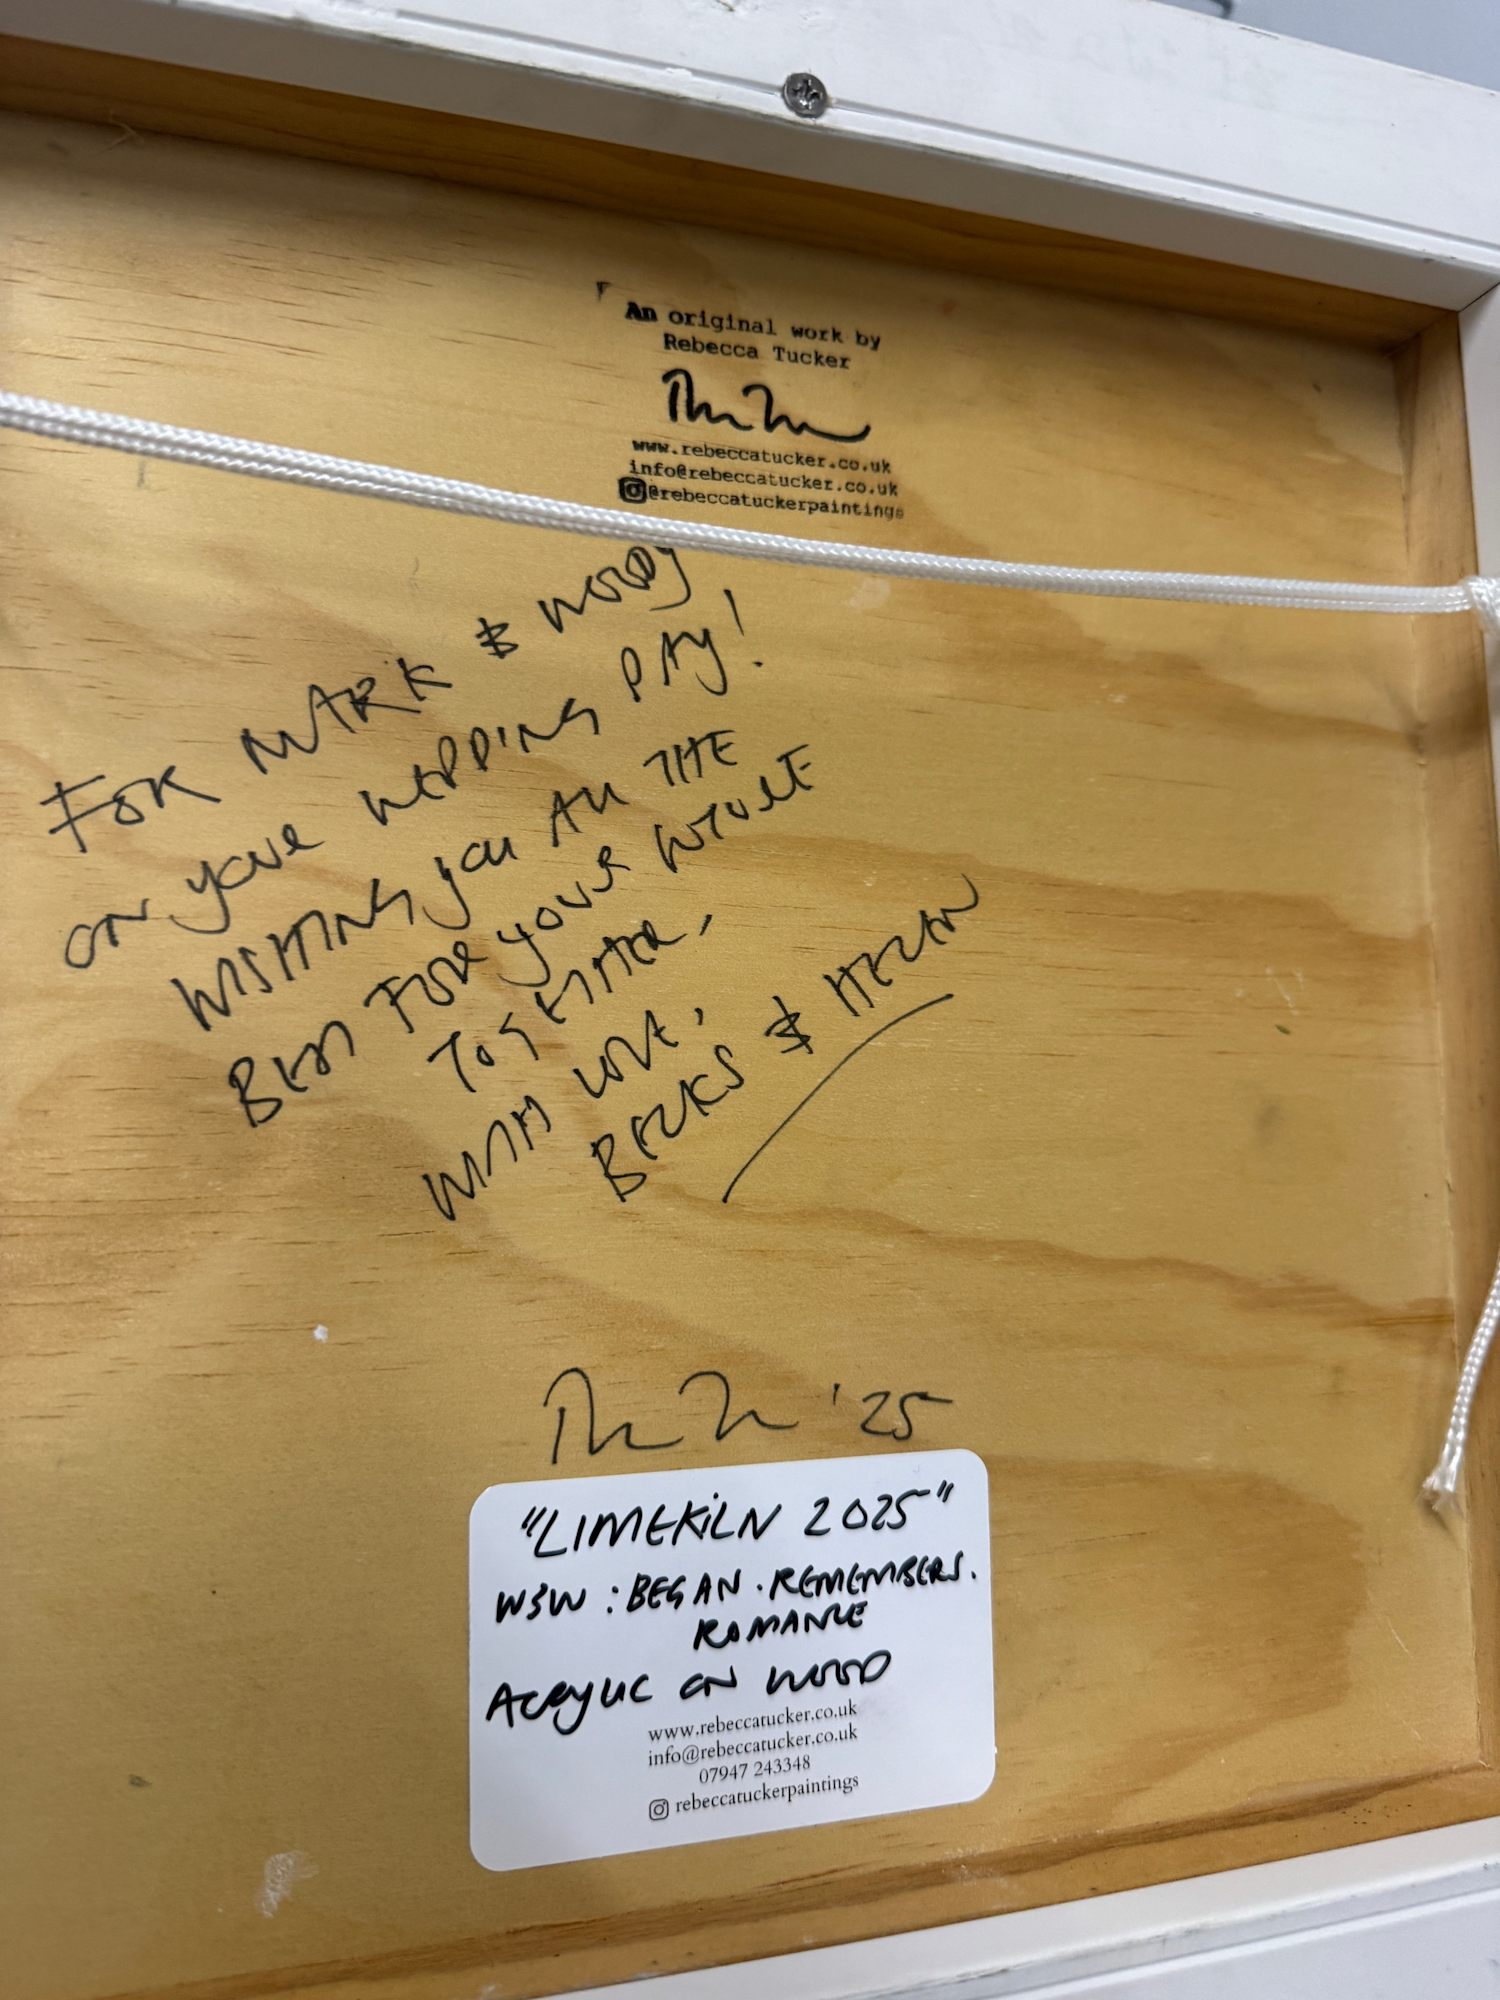 An original work by
Rebecca Tucker
www.rebeccatucker.co.uk
info@rebeccatucker.co.uk
@rebeccatuckerpaintings
FOR MARK & WOODY
ON YOUR WEDDING DAY!
WISHING YOU ALL THE
BEST FOR YOUR FUTURE
TOGETHER,
WITH LOVE,
BECKS & HELEN
'25
"LIMEKILN 2025"
W3W: BEGAN. REMEMBERS.
ROMANCE
ACRYLIC ON WOOD
www.rebeccatucker.co.uk
info@rebeccatucker.co.uk
07947 243348
rebeccatuckerpaintings